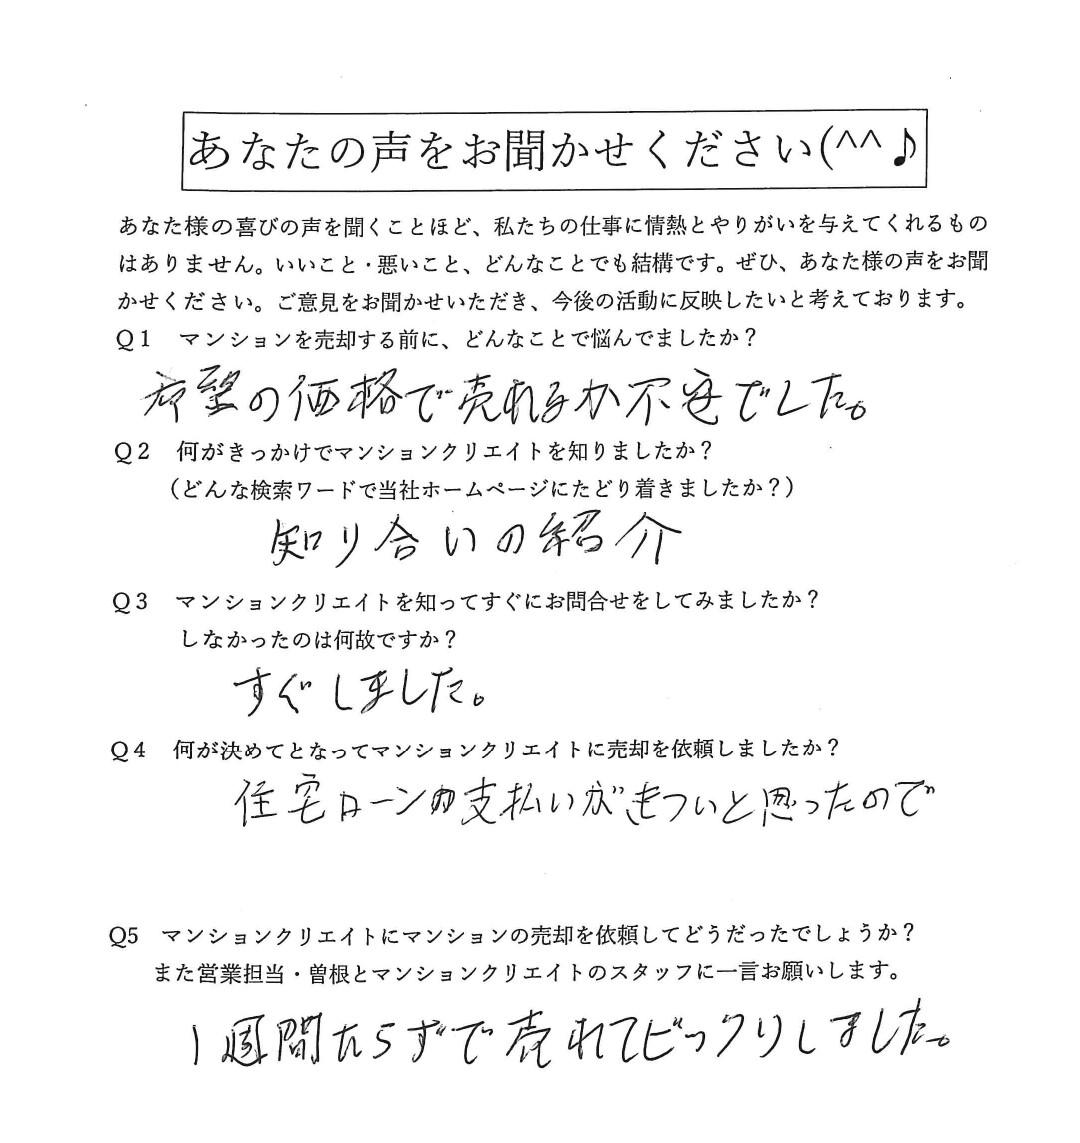 あなたの声をお聞かせください(^^♪
あなた様の喜びの声を聞くことほど、私たちの仕事に情熱とやりがいを与えてくれるもの
はありません。いいこと・悪いこと、どんなことでも結構です。ぜひ、あなた様の声をお聞
かせください。ご意見をお聞かせいただき、今後の活動に反映したいと考えております。
Q1　マンションを売却する前に、どんなことで悩んでましたか？
希望の価格で売れるか不安でした。
Q2　何がきっかけでマンションクリエイトを知りましたか？
（どんな検索ワードで当社ホームページにたどり着きましたか？）
知り合いの紹介
Q3　マンションクリエイトを知ってすぐにお問合せをしてみましたか？
しなかったのは何故ですか？
すぐしました。
Q4　何が決めてとなってマンションクリエイトに売却を依頼しましたか？
住宅ローンの支払いがきついと思ったので
Q5　マンションクリエイトにマンションの売却を依頼してどうだったでしょうか？
また営業担当・曽根とマンションクリエイトのスタッフに一言お願いします。
1週間たらずで売れてビックリしました。